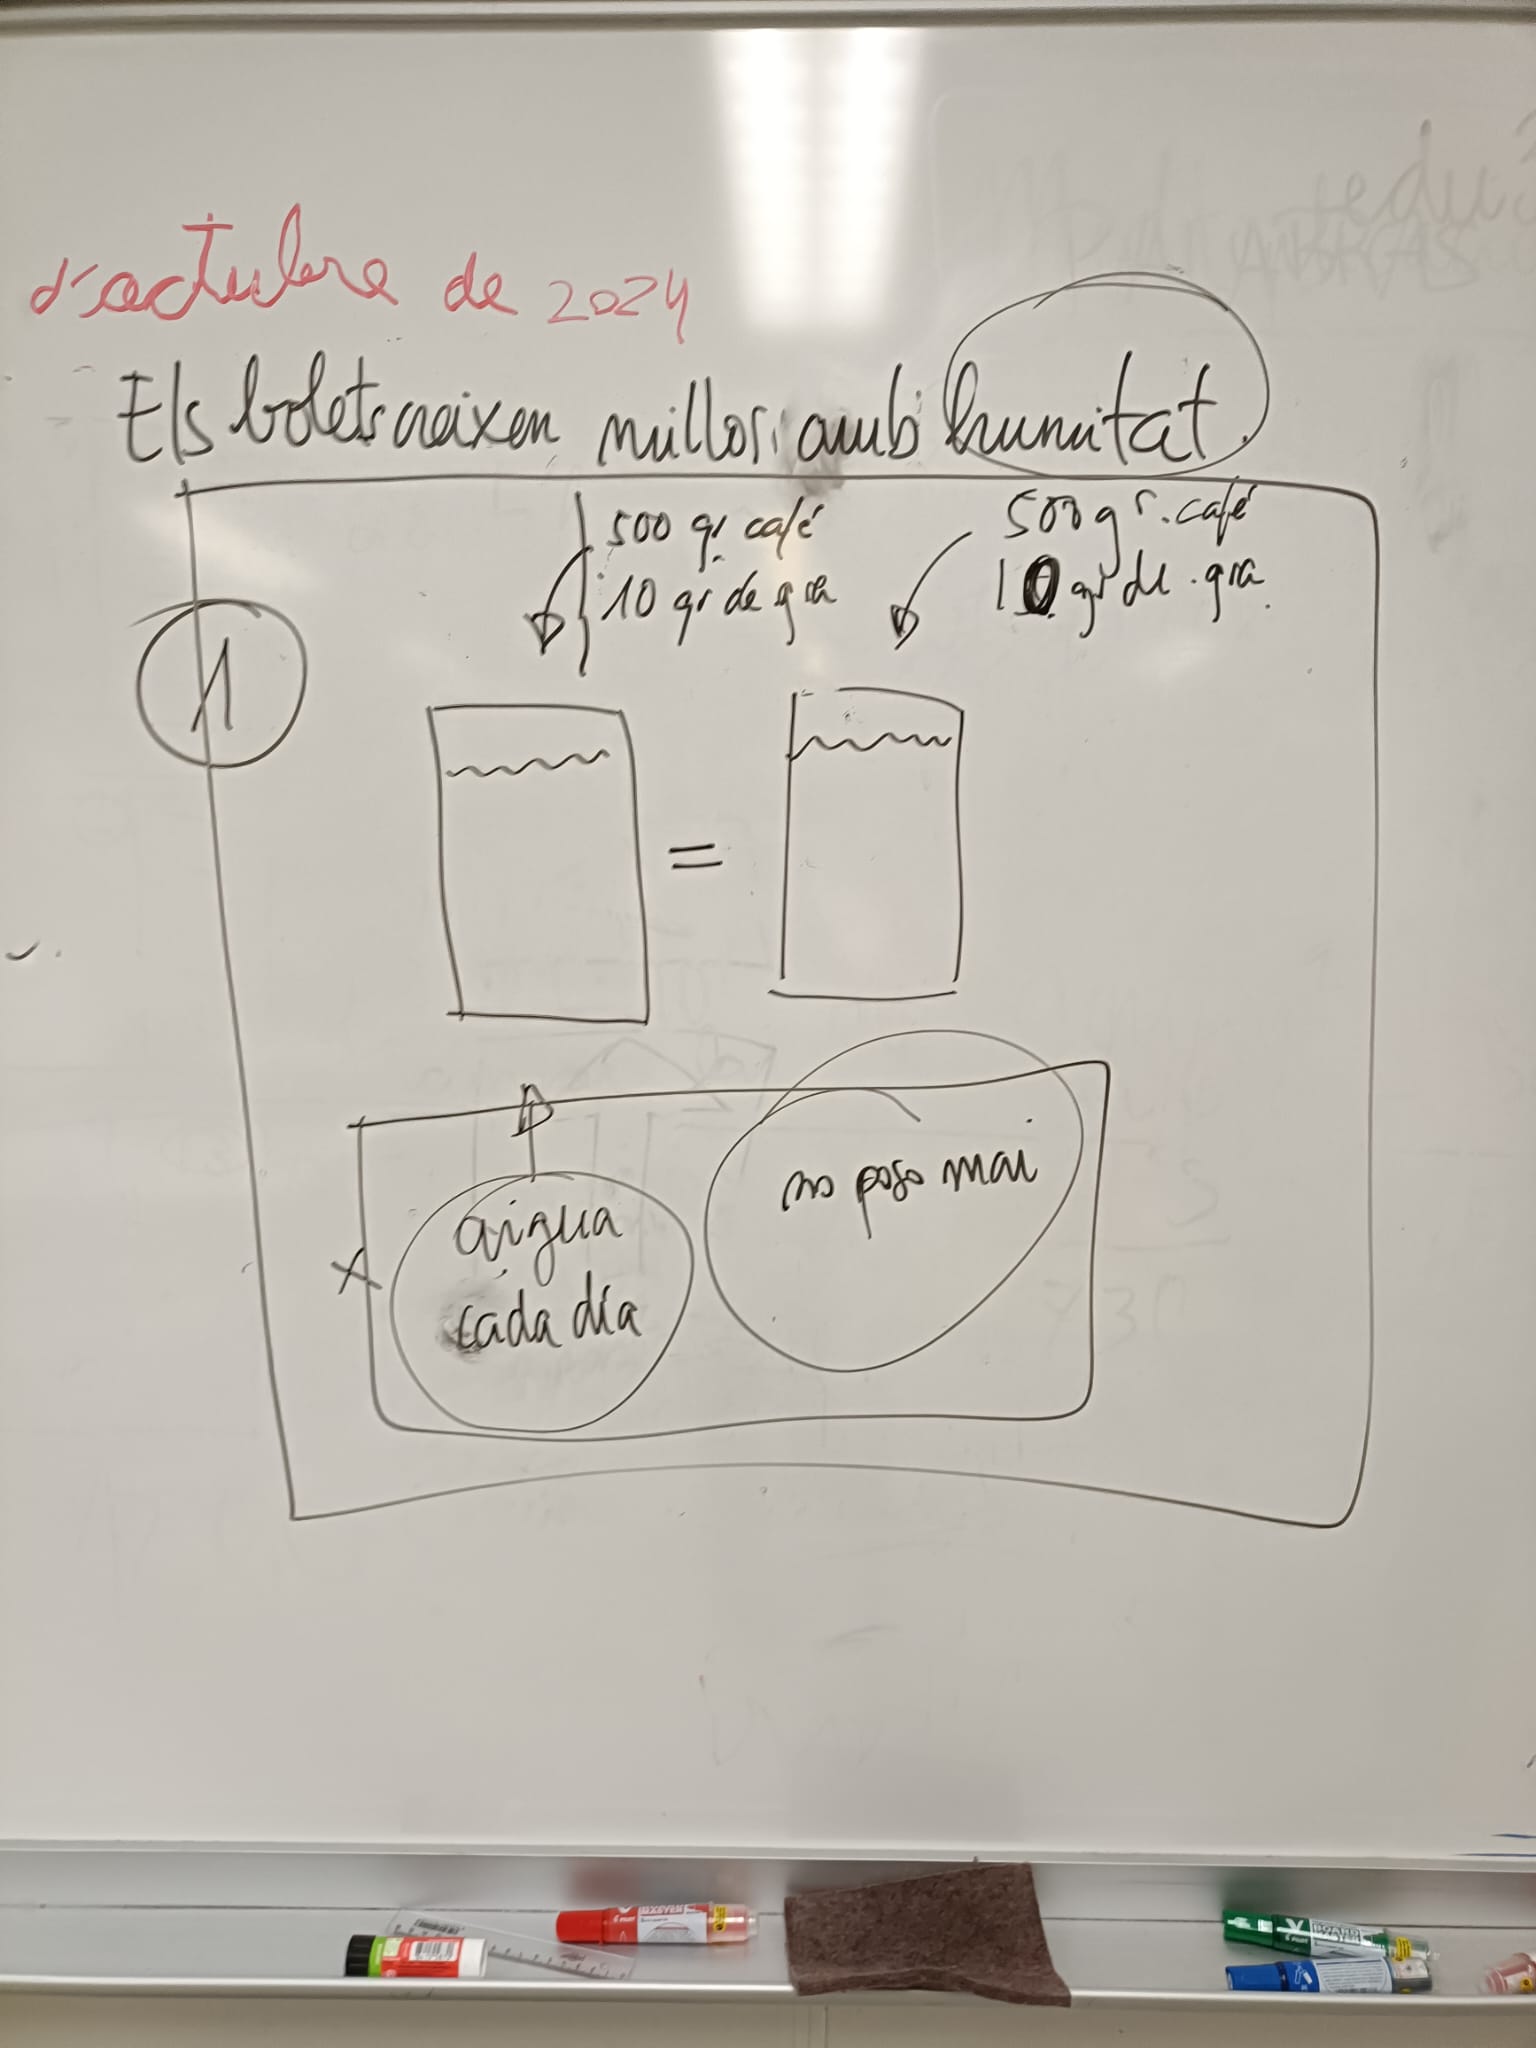 d'octubre de 2024
Els bolets creixen millor amb humitat.
500 gr café
10 gr de gra
500 gr. café
10 gr de gra
1
=
aigua
cada día
no poso mai